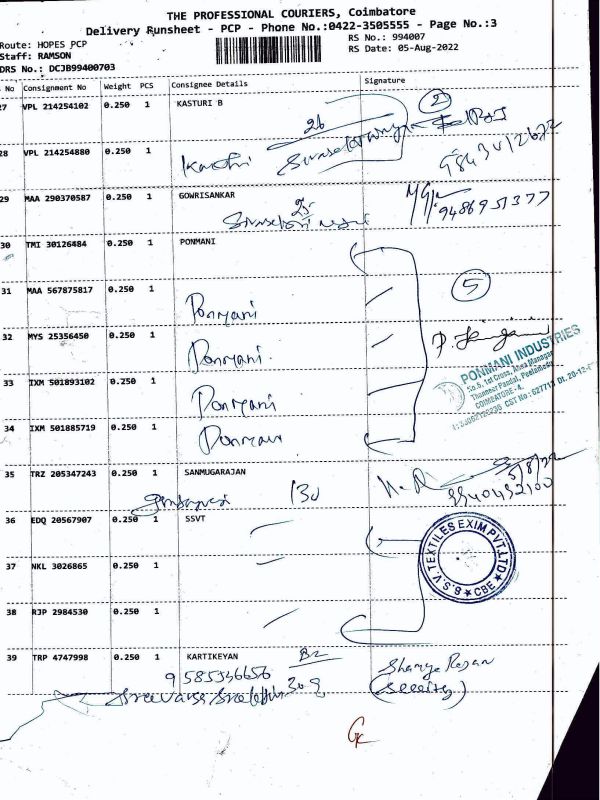 THE PROFESSIONAL COURIERS, Coimbatore
Delivery Runsheet - PCP - Phone No.:0422-3505555 - Page No.:3
Route: HOPES PCP
RS No.: 994007
Staff: RAMSON
RS Date: 05-Aug-2022
DRS No.: DCJB99400703
No Consignment No Weight PCS Consignee Details Signature
27 VPL 214254102 0.250 1 KASTURI B
26
2
28 VPL 214254880 0.250 1
29 MAA 290370587 0.250 1 GOWRISANKAR
25
9486951377
30 TMI 30126484 0.250 1 PONMANI
31 MAA 567875817 0.250 1
Ponmani
5
32 MYS 25356450 0.250 1
Ponmani
PONMANI INDUSTRIES
33 IXM 501893102 0.250 1
Ponmani
COIMBATORE - 4.
34 IXM 501885719 0.250 1
Ponmani
35 TRZ 205347243 0.250 1 SANMUGARAJAN
130
36 EDQ 20567907 0.250 1 SSVT
B.S.V. TEXTILES EXIM PVT.LTD ★ CBE ★
37 NKL 3026865 0.250 1
38 RJP 2984530 0.250 1
39 TRP 4747998 0.250 1 KARTIKEYAN
B2
9585346656
309